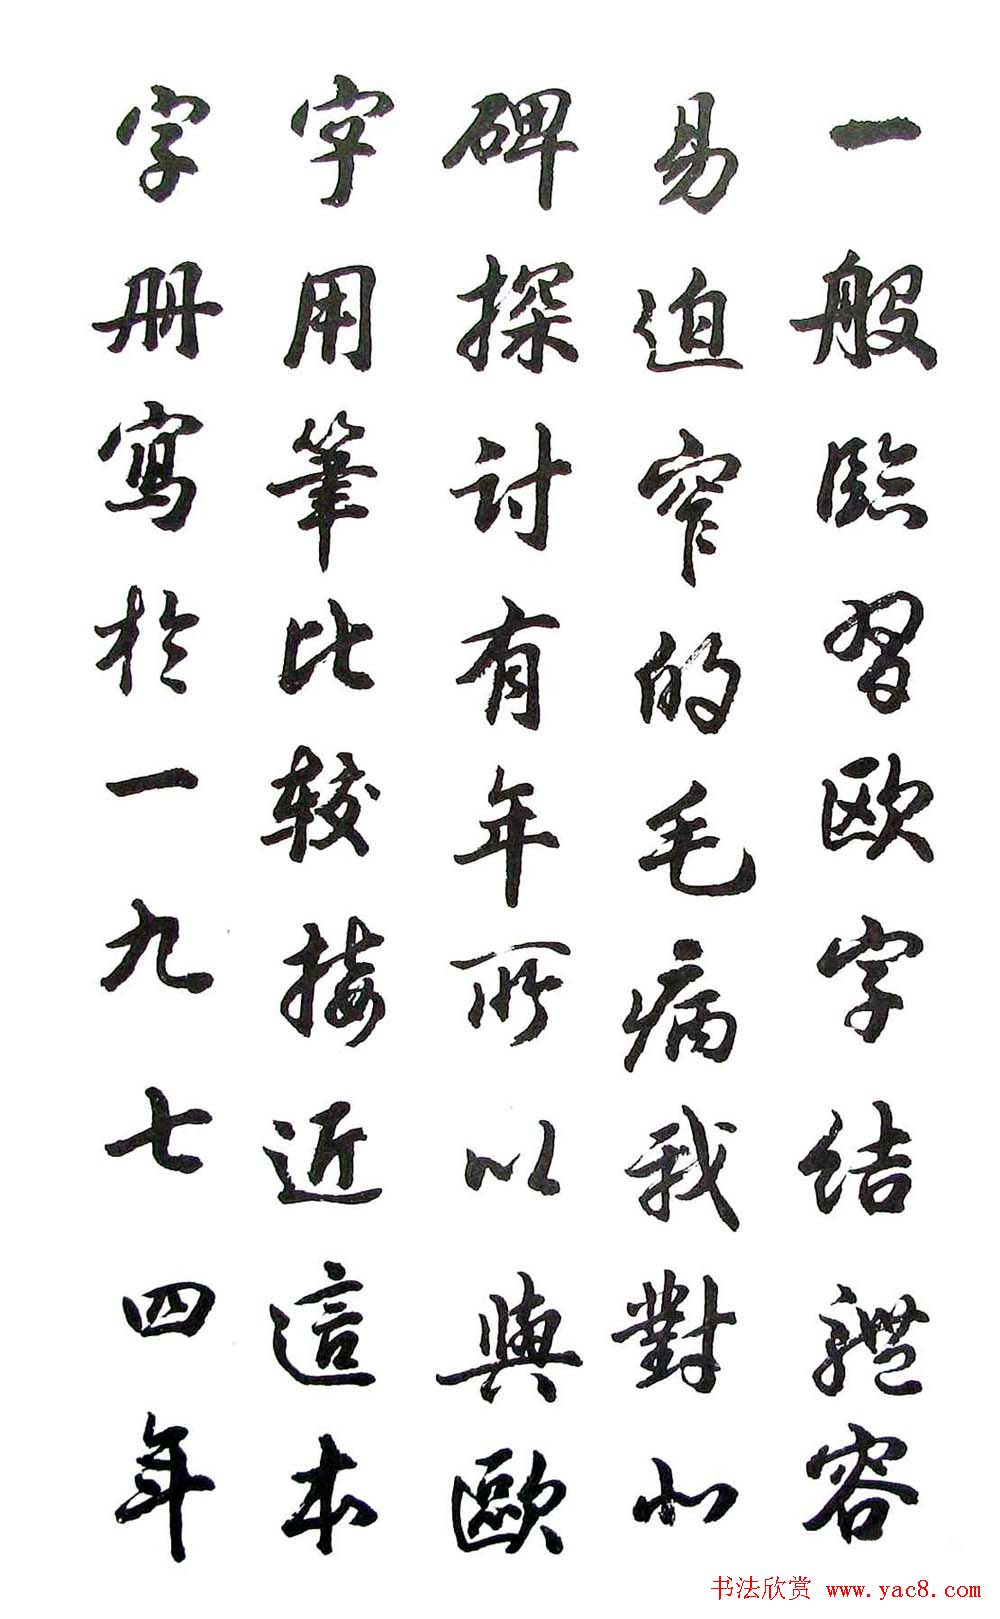 一般臨習歐字結體容
易迫窄的毛病我對北
碑探討有年所以與歐
字用筆比較接近這本
字册寫於一九七四年
书法欣赏 www.yac8.com